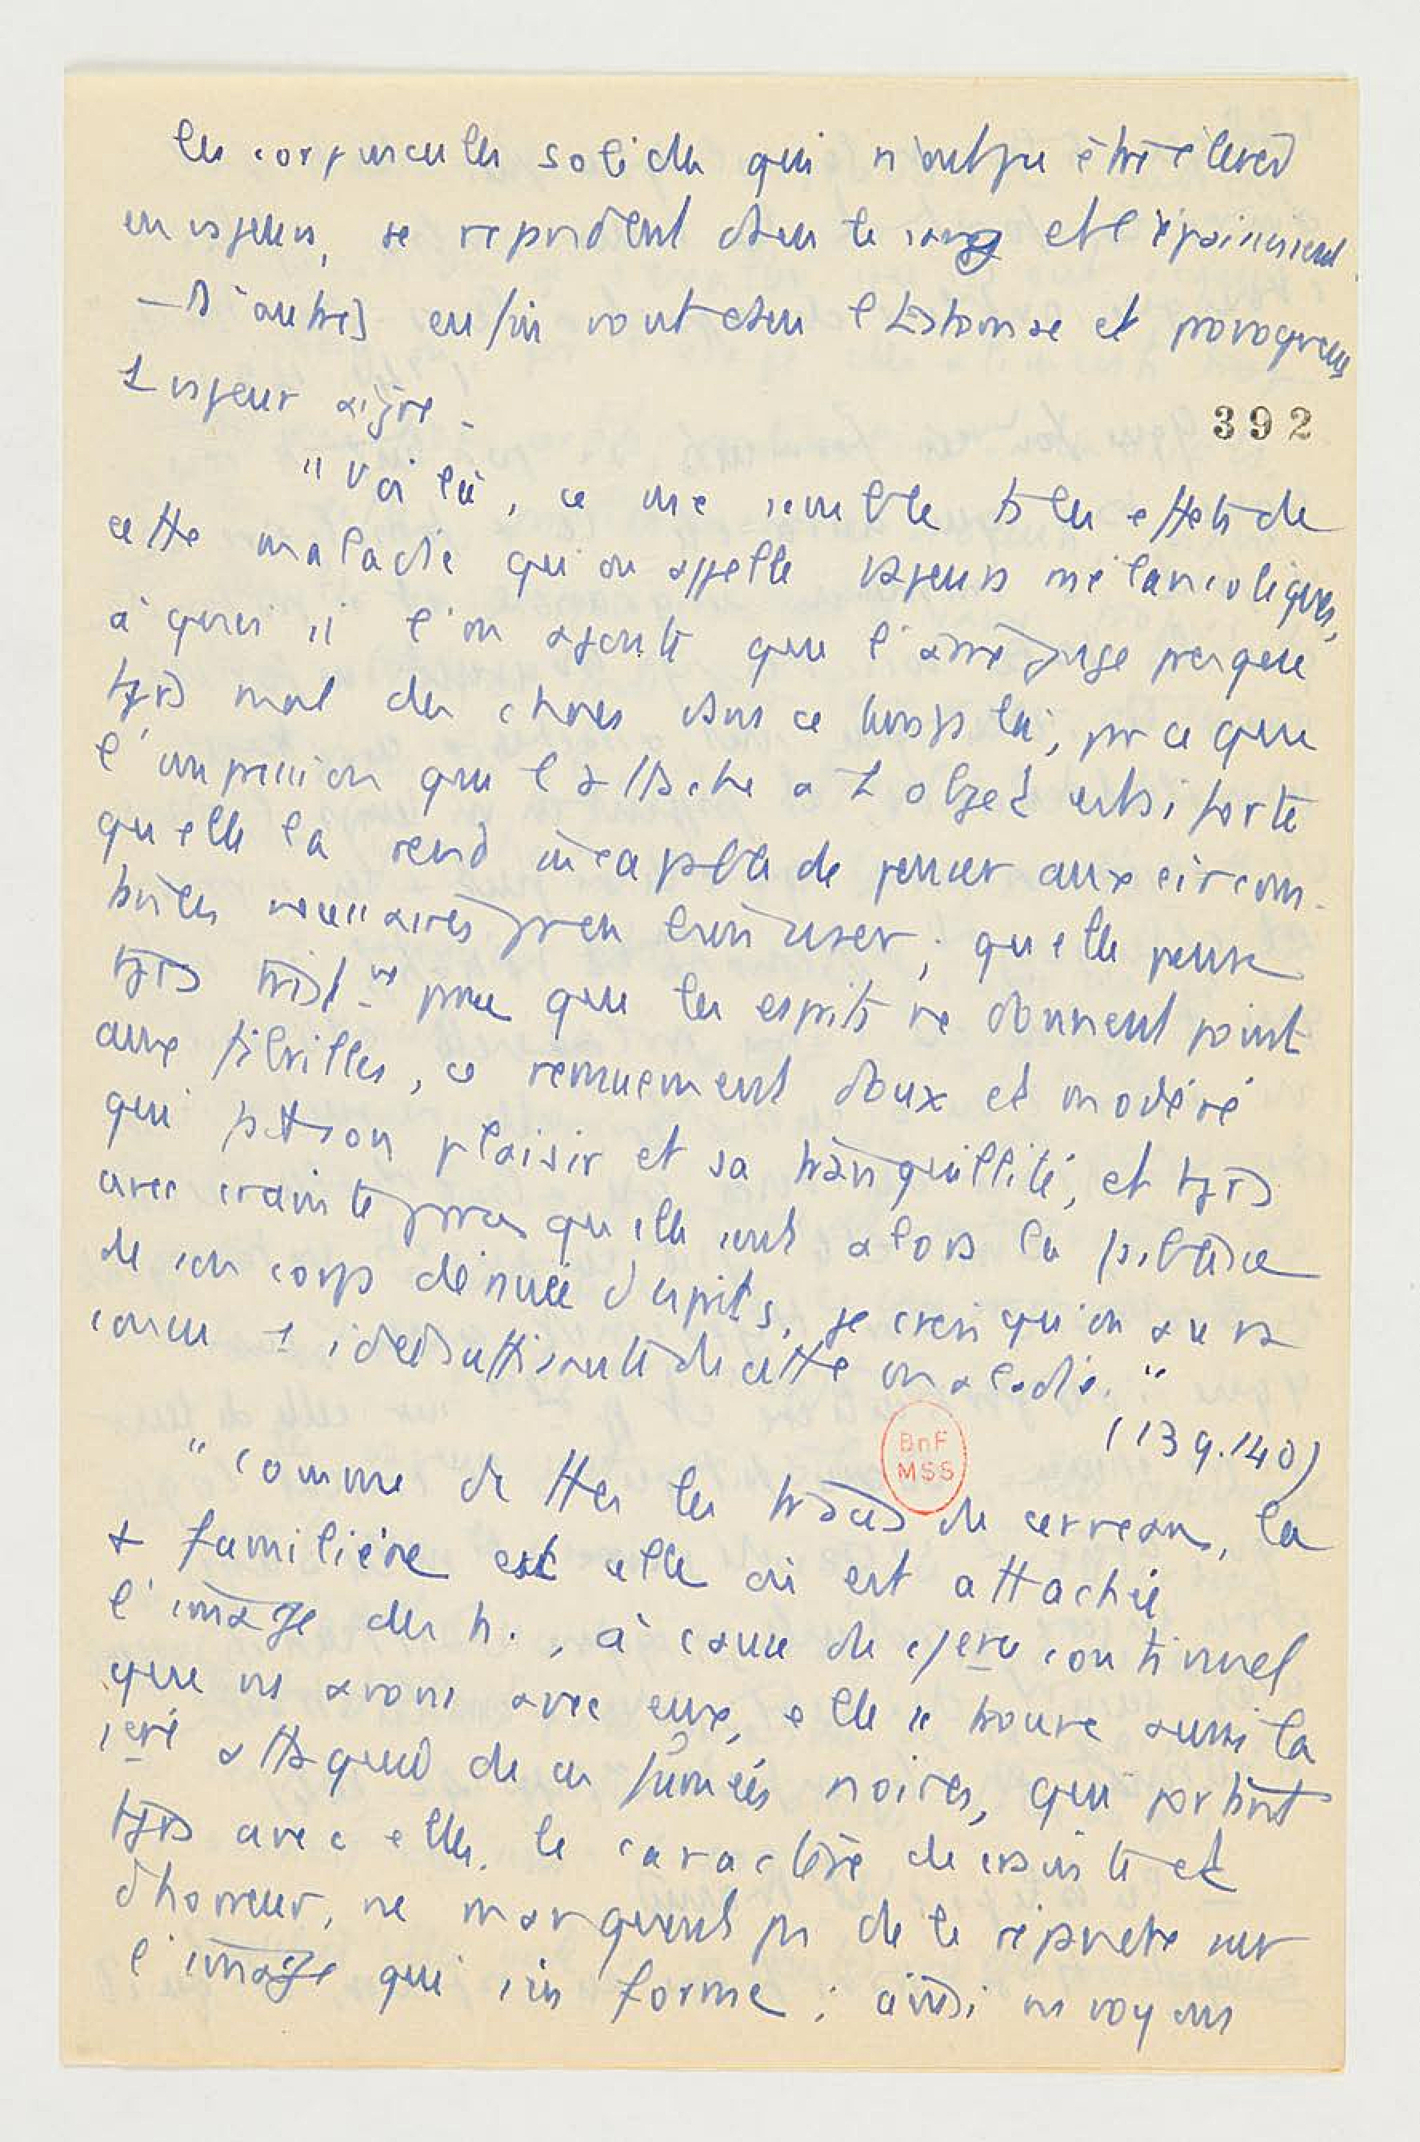 les corpuscules solides qui n'ont pu être élevés
en vapeurs, se répandent dans le sang et l'épaississent.
— D'autres enfin vont dans l'estomac et provoquent
1 vapeur aigre.
392
"Voilà, ce me semble ts les effets de
cette maladie qu'on appelle vapeurs mélancoliques,
à quoi si l'on ajoute que l'âme juge presque
tjrs mal des choses dans ce temps là, pr ce que
l'impression que l'attache a 1 objet est si forte
qu'elle la rend incapable de penser aux circons-
tances nécessaires pr en bien juser ; qu'elle pense
tjrs trist.nt prce que les esprits ne donnent point
aux fibrilles, ce remuement doux et modéré
qui fait son plaisir et sa tranquillité, et tjrs
avec crainte prce qu'elle sent alors la faiblesse
de son corps dénuée d'esprits, je crois qu'on aura
conçu 1 idée suffisante de cette maladie."
(139.140)
"Comme de ttes les traces du cerveau, la
+ familière est celle où est attachée
l'image des h., à cause du commerce continuel
que ns avons avec eux, elle se trouve aussi la
attaquée de ces fumées noires, qui portant
tjrs avec elles le caractère de crainte et
d'horreur, ne manquent ps de le répandre sur
l'image qui s'en forme ; ainsi ns voyons
BnF
MSS